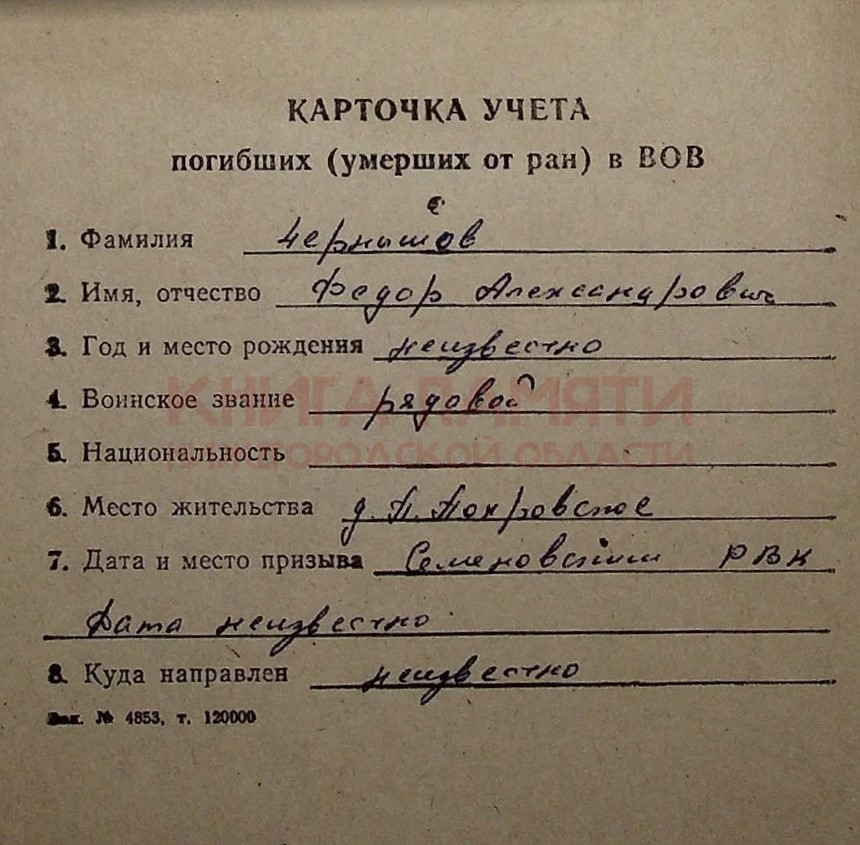 КАРТОЧКА УЧЕТА
погибших (умерших от ран) в ВОВ
е
1. Фамилия Чернышов
2. Имя, отчество Федор Александрович
3. Год и место рождения неизвестно
КНИГА ПАМЯТИ
4. Воинское звание рядовой
5. Национальность
НИЖЕГОРОДСКОЙ ОБЛАСТИ
6. Место жительства д. П. Покровское
7. Дата и место призыва Семеновским РВК
Дата неизвестно
8. Куда направлен неизвестно
Зак. № 4853, т. 120000